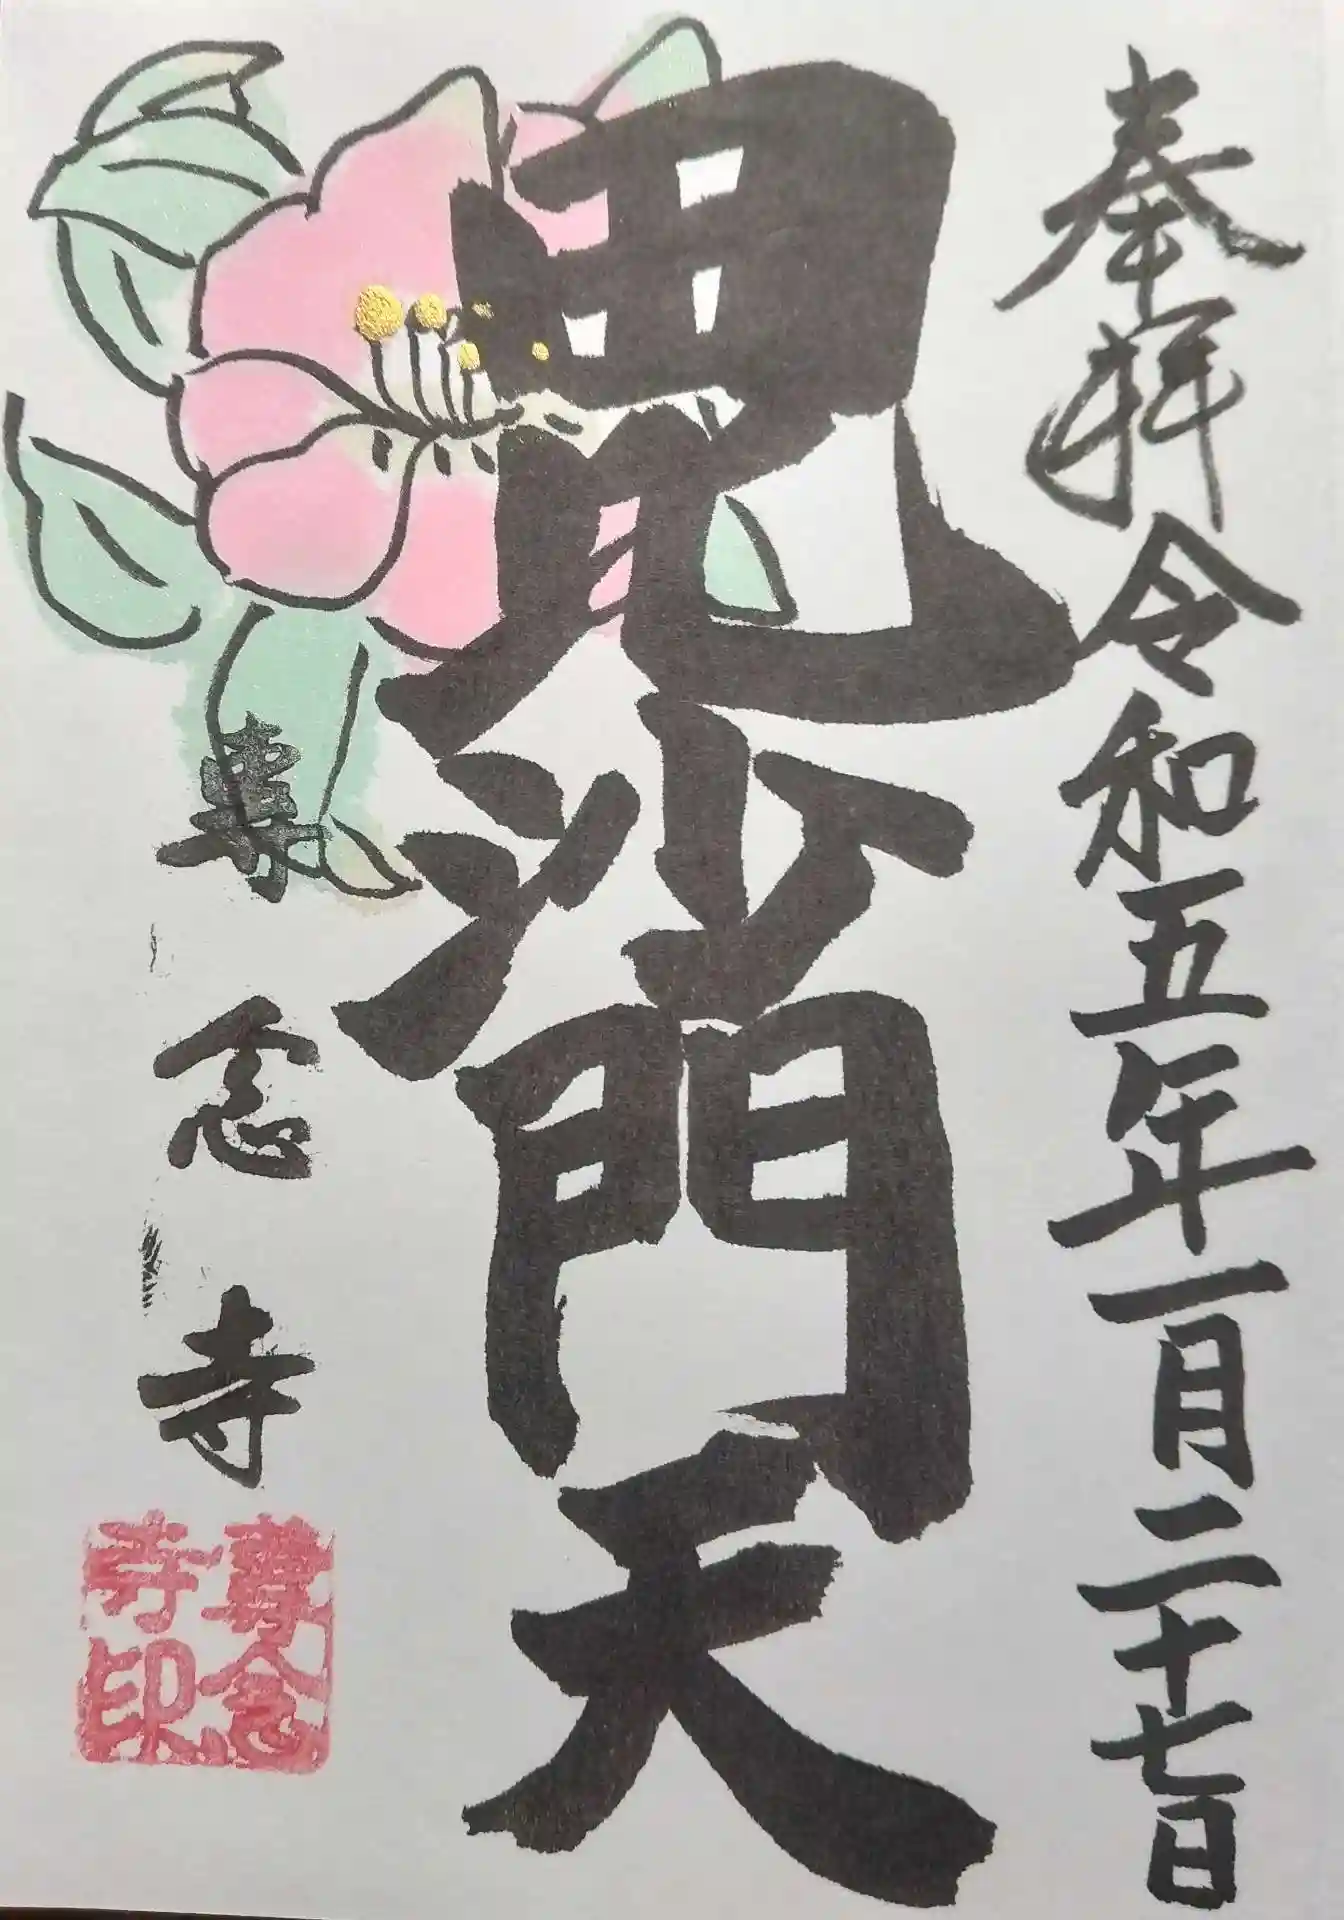 奉拝 令和五年一月二十七日
毘沙門天
専念寺
専念寺印